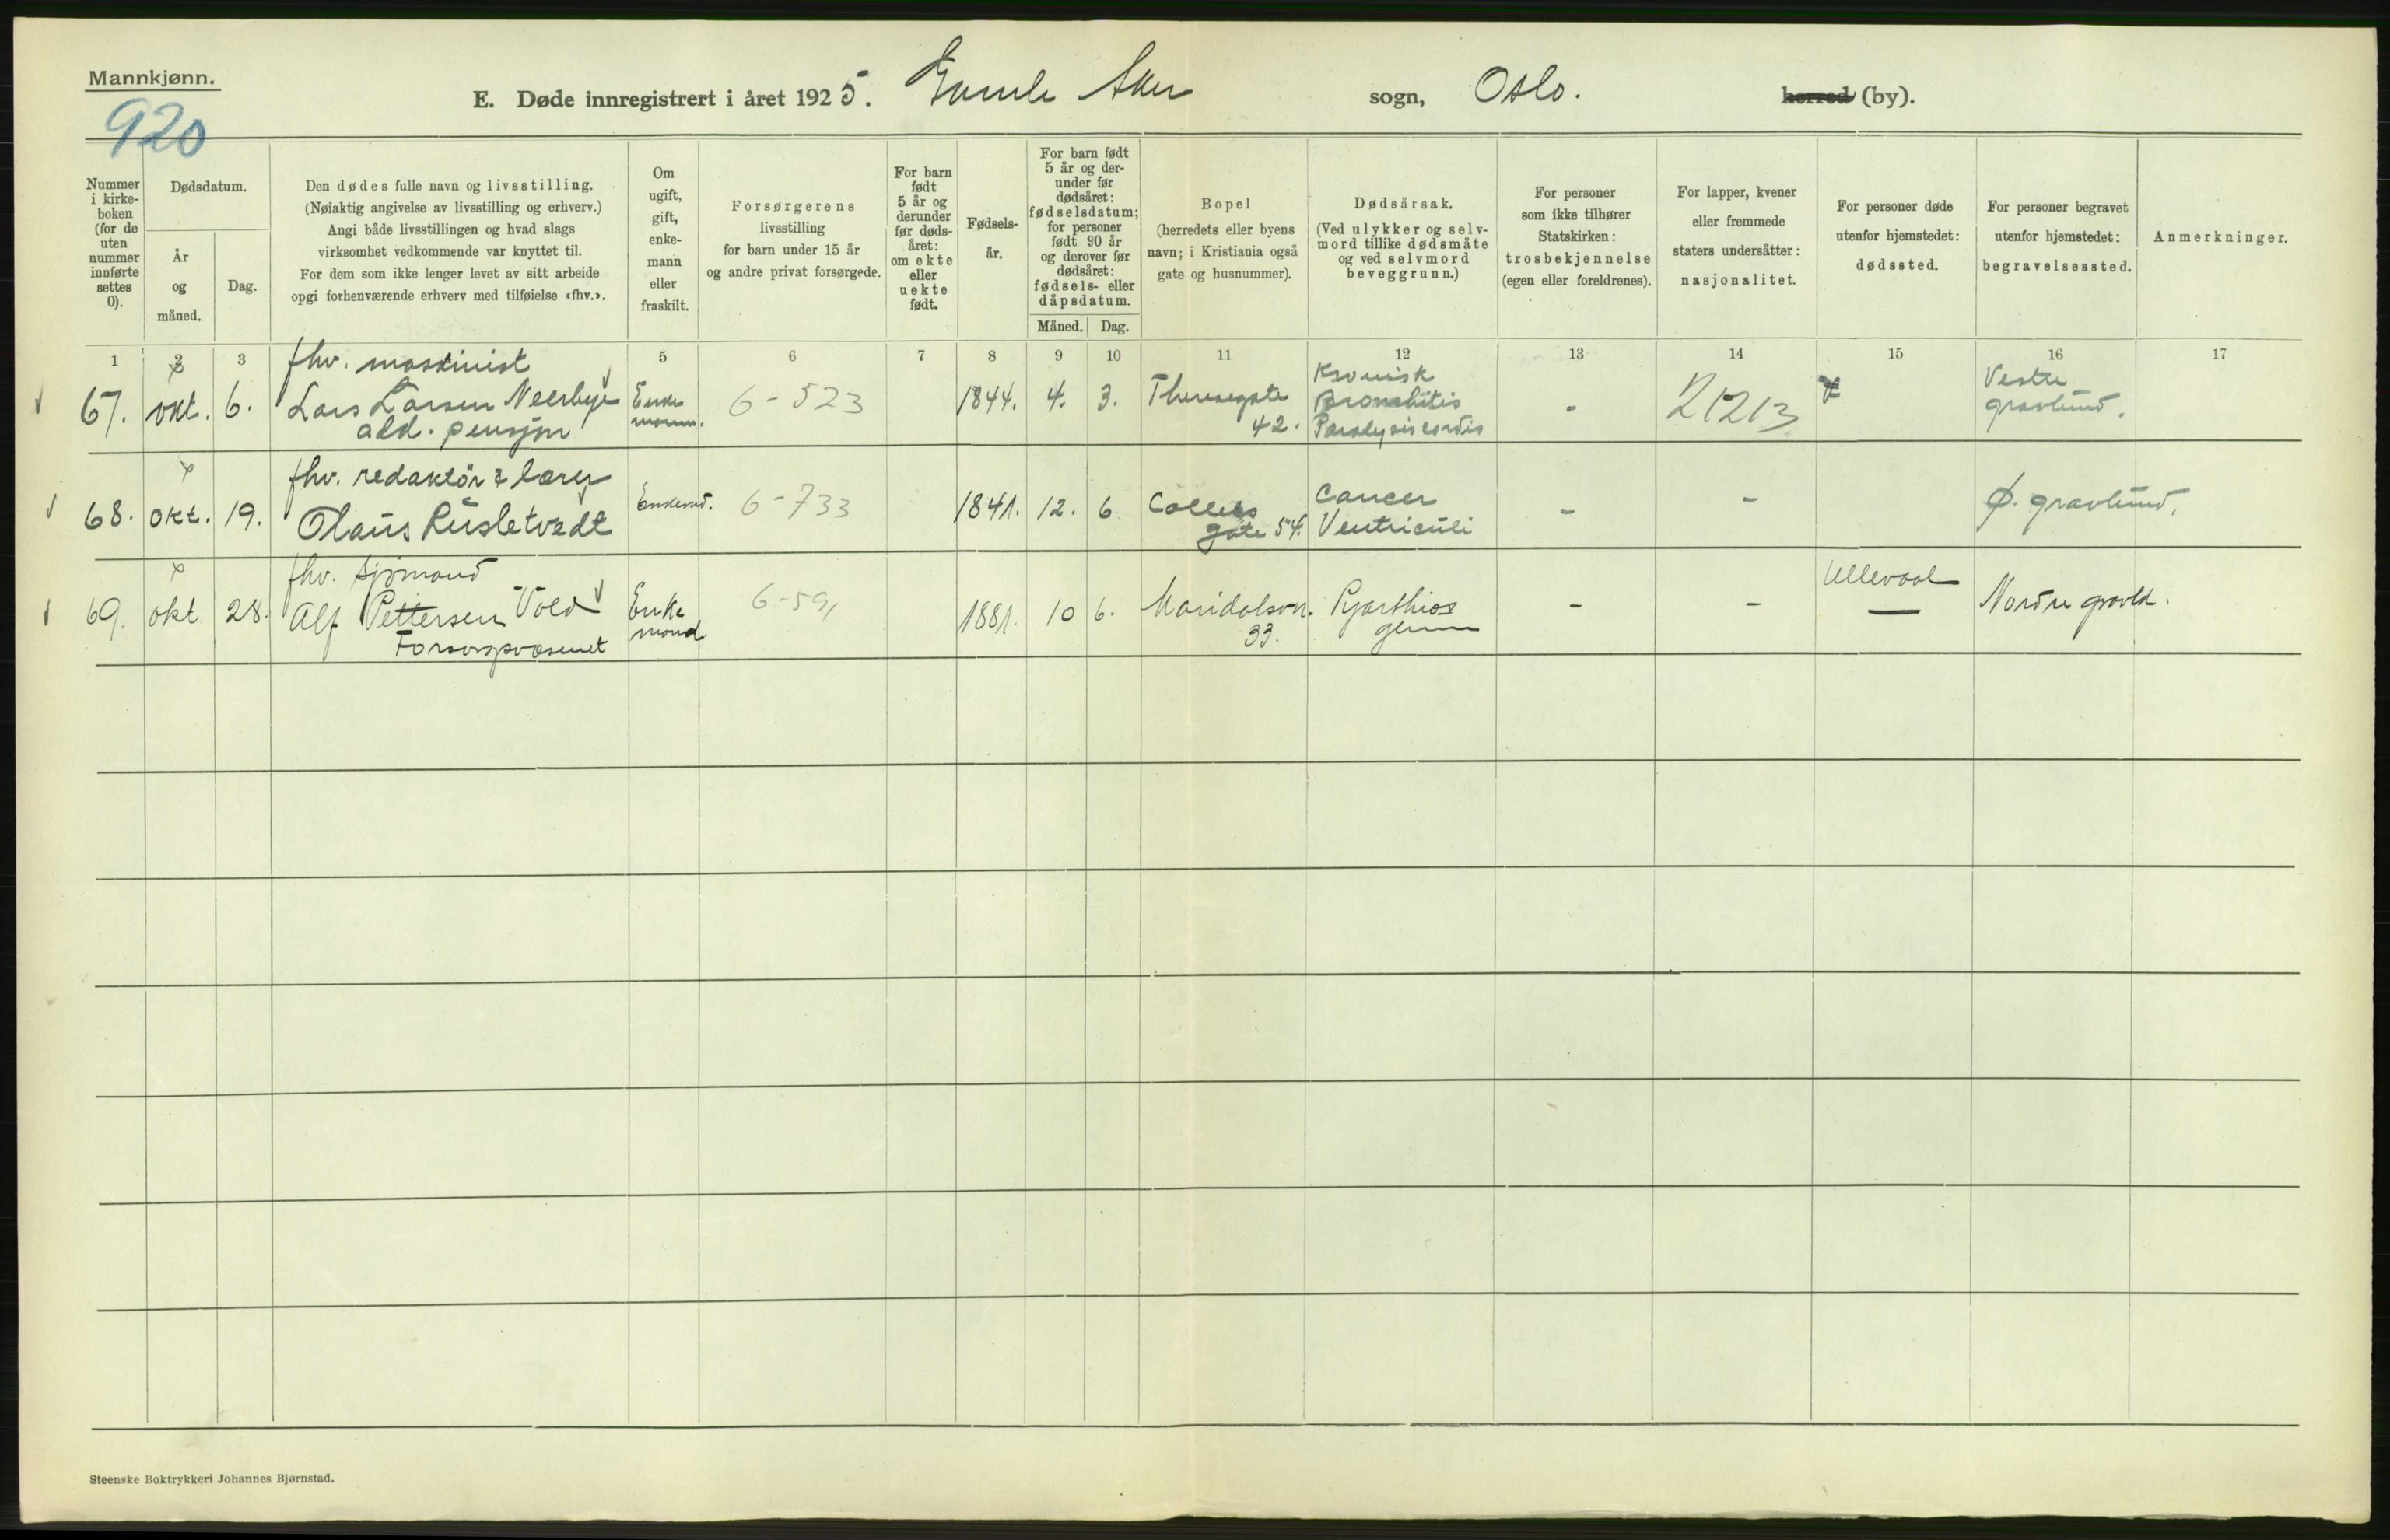 Mannkjønn.
920
E. Døde innregistrert i året 1925. Gamle Aker sogn, Oslo. herred (by).
Nummer i kirke-boken (for de uten nummer innførte settes 0).
Dødsdatum.
År og måned.
Dag.
Den dødes fulle navn og livsstilling.
(Nøiaktig angivelse av livsstilling og erhverv.)
Angi både livsstillingen og hvad slags
virksomhet vedkommende var knyttet til.
For dem som ikke lenger levet av sitt arbeide
opgi forhenværende erhverv med tilføielse «fhv.».
Om
ugift,
gift,
enke-
mann
eller
fraskilt.
Forsørgerens
livsstilling
for barn under 15 år
og andre privat forsørgede.
For barn
født
5 år og
derunder
før døds-
året:
om ekte
eller
uekte
født.
Fødsels-
år.
For barn født
5 år og der-
under før
dødsåret:
fødselsdatum;
for personer
født 90 år
og derover før
dødsåret:
fødsels- eller
dåpsdatum.
Måned. Dag.
Bopel
(herredets eller byens
navn; i Kristiania også
gate og husnummer).
Dødsårsak.
(Ved ulykker og selv-
mord tillike dødsmåte
og ved selvmord
beveggrunn.)
For personer
som ikke tilhører
Statskirken:
trosbekjennelse
(egen eller foreldrenes).
For lapper, kvener
eller fremmede
staters undersåtter:
nasjonalitet.
For personer døde
utenfor hjemstedet:
dødssted.
For personer begravet
utenfor hjemstedet:
begravelsessted.
Anmerkninger.
1 2 3 5 6 7 8 9 10 11 12 13 14 15 16 17
fhv. maskinist
67. okt. 6. Lars Larsen Neerbye
ald. pensjon
Enke
mann.
6-523
1844. 4. 3.
Theresegate
42.
Kronisk
Bronchitis
Paralysis cordis
-
21213
Vestre
gravlund.
fhv. redaktør & lærer
68. okt. 19. Olaus Rusletvedt
Enkem.
6-733
1841. 12. 6
Colletts
gate 54.
Cancer
Ventriculi
-
-
Ø. gravlund.
fhv. sjømand
69. okt 28. Alf Pettersen Vold
Forsorgsvæsenet
Enke
mand
6-591
1881. 10 6.
Maridalsvn.
33.
Pyarthios
genu
-
-
Ullevaal
Nordre gravld.
Steenske Boktrykkeri Johannes Bjørnstad.